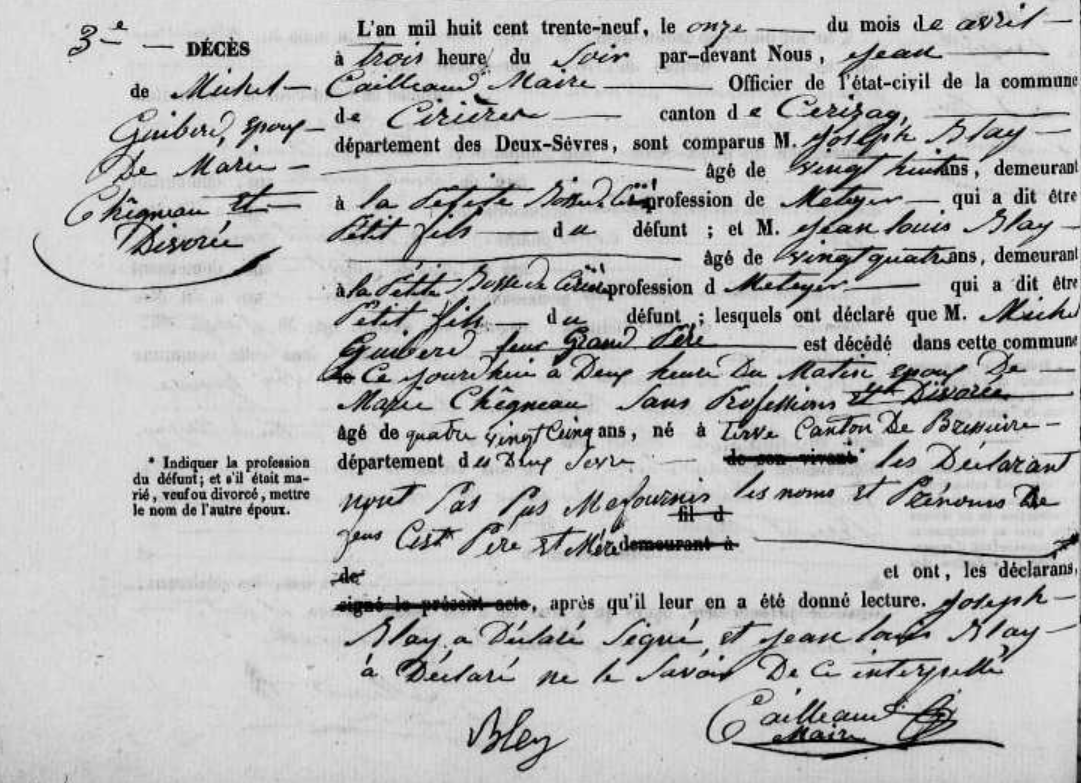 3e
DÉCÈS
de Michel
Guiberd, epoux
De Marie
Chêgneau et
Divorée
* Indiquer la profession
du défunt; et s'il était ma-
rié, veuf ou divorcé, mettre
le nom de l'autre époux.
L'an mil huit cent trente-neuf, le onze du mois de avril
à trois heure du Soir par-devant Nous, Jean
Cailleaud Maire Officier de l'état-civil de la commune
de Cirières canton de Cerizay,
département des Deux-Sèvres, sont comparus M. Joseph Blay
âgé de vingt huit ans, demeurant
à la Petite profession de Meteyer qui a dit être
Petit fils du défunt ; et M. Jean louis Blay
âgé de vingt quatre ans, demeurant
à la Petite profession d Meteyer qui a dit être
Petit fils du défunt ; lesquels ont déclaré que M. Michel
Guiberd feux Grand Père est décédé dans cette commune
le Ce jourdhui à Deux heure Du Matin epoux De
Marie Chêgneau Sans Professions Et Divorée
âgé de quatre vingt Cinq ans, né à terve Canton De Bressuire
département des Deux Sevre de son vivant les Declarant
nont Pas Pus Mafournir les noms et Prenoms De
fil d
Cest Père et Mère demeurant à
de et ont, les déclarans,
signé le présent acte, après qu'il leur en a été donné lecture. Joseph
Blay a Déclaré Signé, et Jean louis Blay
à Déclaré ne le Savoir De ce interpellé
Bley
Cailleaud
Maire